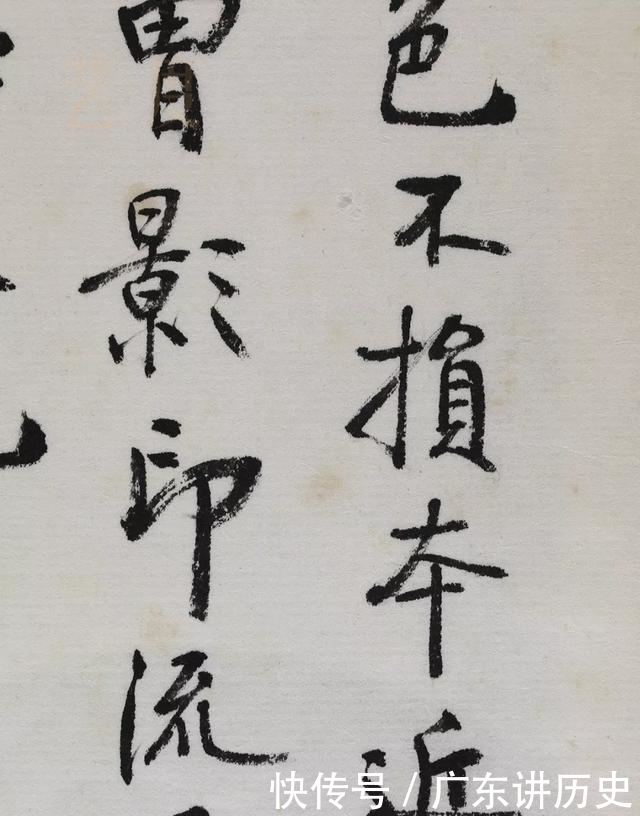 色不损本近
胄影印流
快传号/广东讲历史